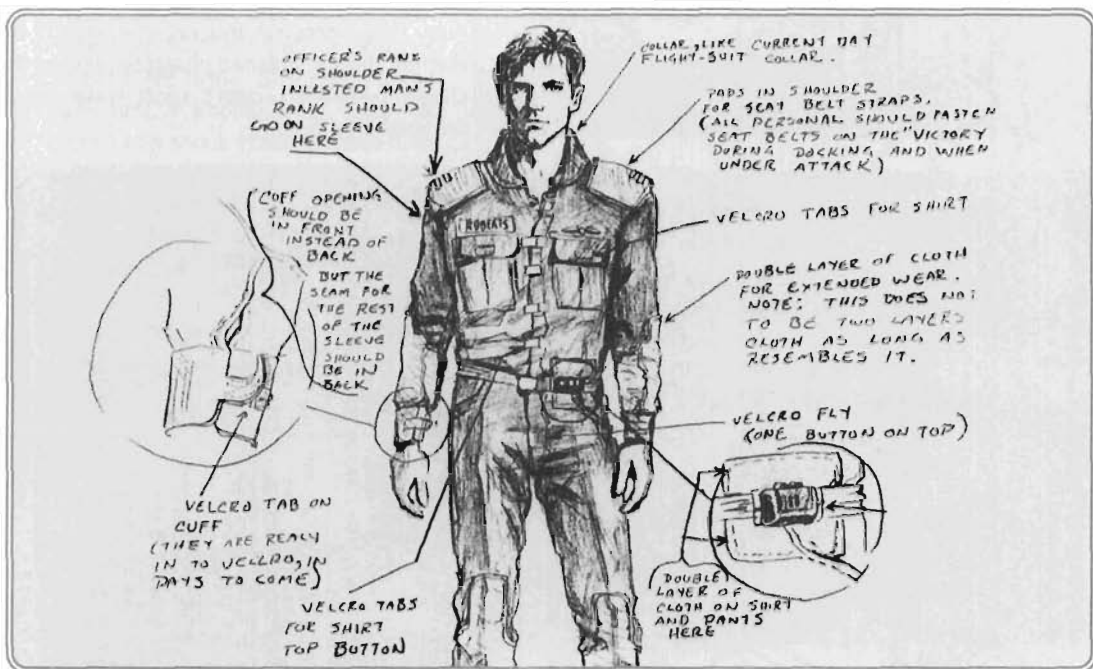 OFFICER'S RANK
ON SHOULDER
INLESTED MAN'S
RANK SHOULD
GO ON SLEEVE
HERE
COLLAR, LIKE CURRENT DAY
FLIGHT-SUIT COLLAR.
PADS IN SHOULDER
FOR SEAT BELT STRAPS.
(ALL PERSONAL SHOULD FASTEN
SEAT BELTS ON THE "VICTORY
DURING DOCKING AND WHEN
UNDER ATTACK)
CUFF OPENING
SHOULD BE
IN FRONT
INSTEAD OF
BACK
BUT THE
SEAM FOR
THE REST
OF THE
SLEEVE
SHOULD
BE IN
BACK
ROBERTS
VELCRO TABS FOR SHIRT
DOUBLE LAYER OF CLOTH
FOR EXTENDED WEAR.
NOTE: THIS DOES NOT
TO BE TWO LAYERS
CLOTH AS LONG AS
RESEMBLES IT.
VELCRO FLY
(ONE BUTTON ON TOP)
VELCRO TAB ON
CUFF
(THEY ARE REALY
IN TO VELCRO, IN
DAYS TO COME)
VELCRO TABS
FOR SHIRT
TOP BUTTON
(DOUBLE
LAYER OF
CLOTH ON SHIRT
AND PANTS
HERE